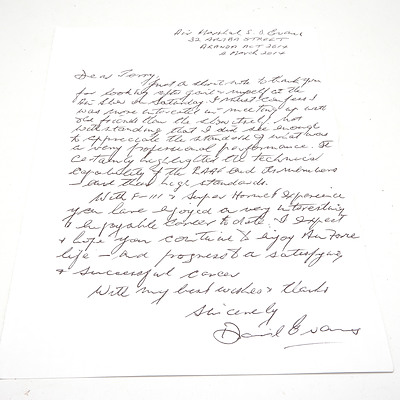 Air Marshal S. D. Evans
32 ARUMA STREET
ARANDA ACT 2614
2 March 2014
Dear Terry
Just a short note to thank you
for looking after Gail & myself at the
Air Show on Saturday. I must confess I
was more interested in meeting up with
old friends than the show itself, not
withstanding that I did see enough
to appreciate the standard of what was
a very professional performance. It
certainly highlighted the technical
capability of the RAAF and its members
and their high standards.
With F-111 & Super Hornet experience
you have enjoyed a very interesting
& enjoyable career to date. I expect
& hope you continue to enjoy Air Force
life - and progress to a satisfying
& successful career
With my best wishes & thanks
Sincerely
David Evans